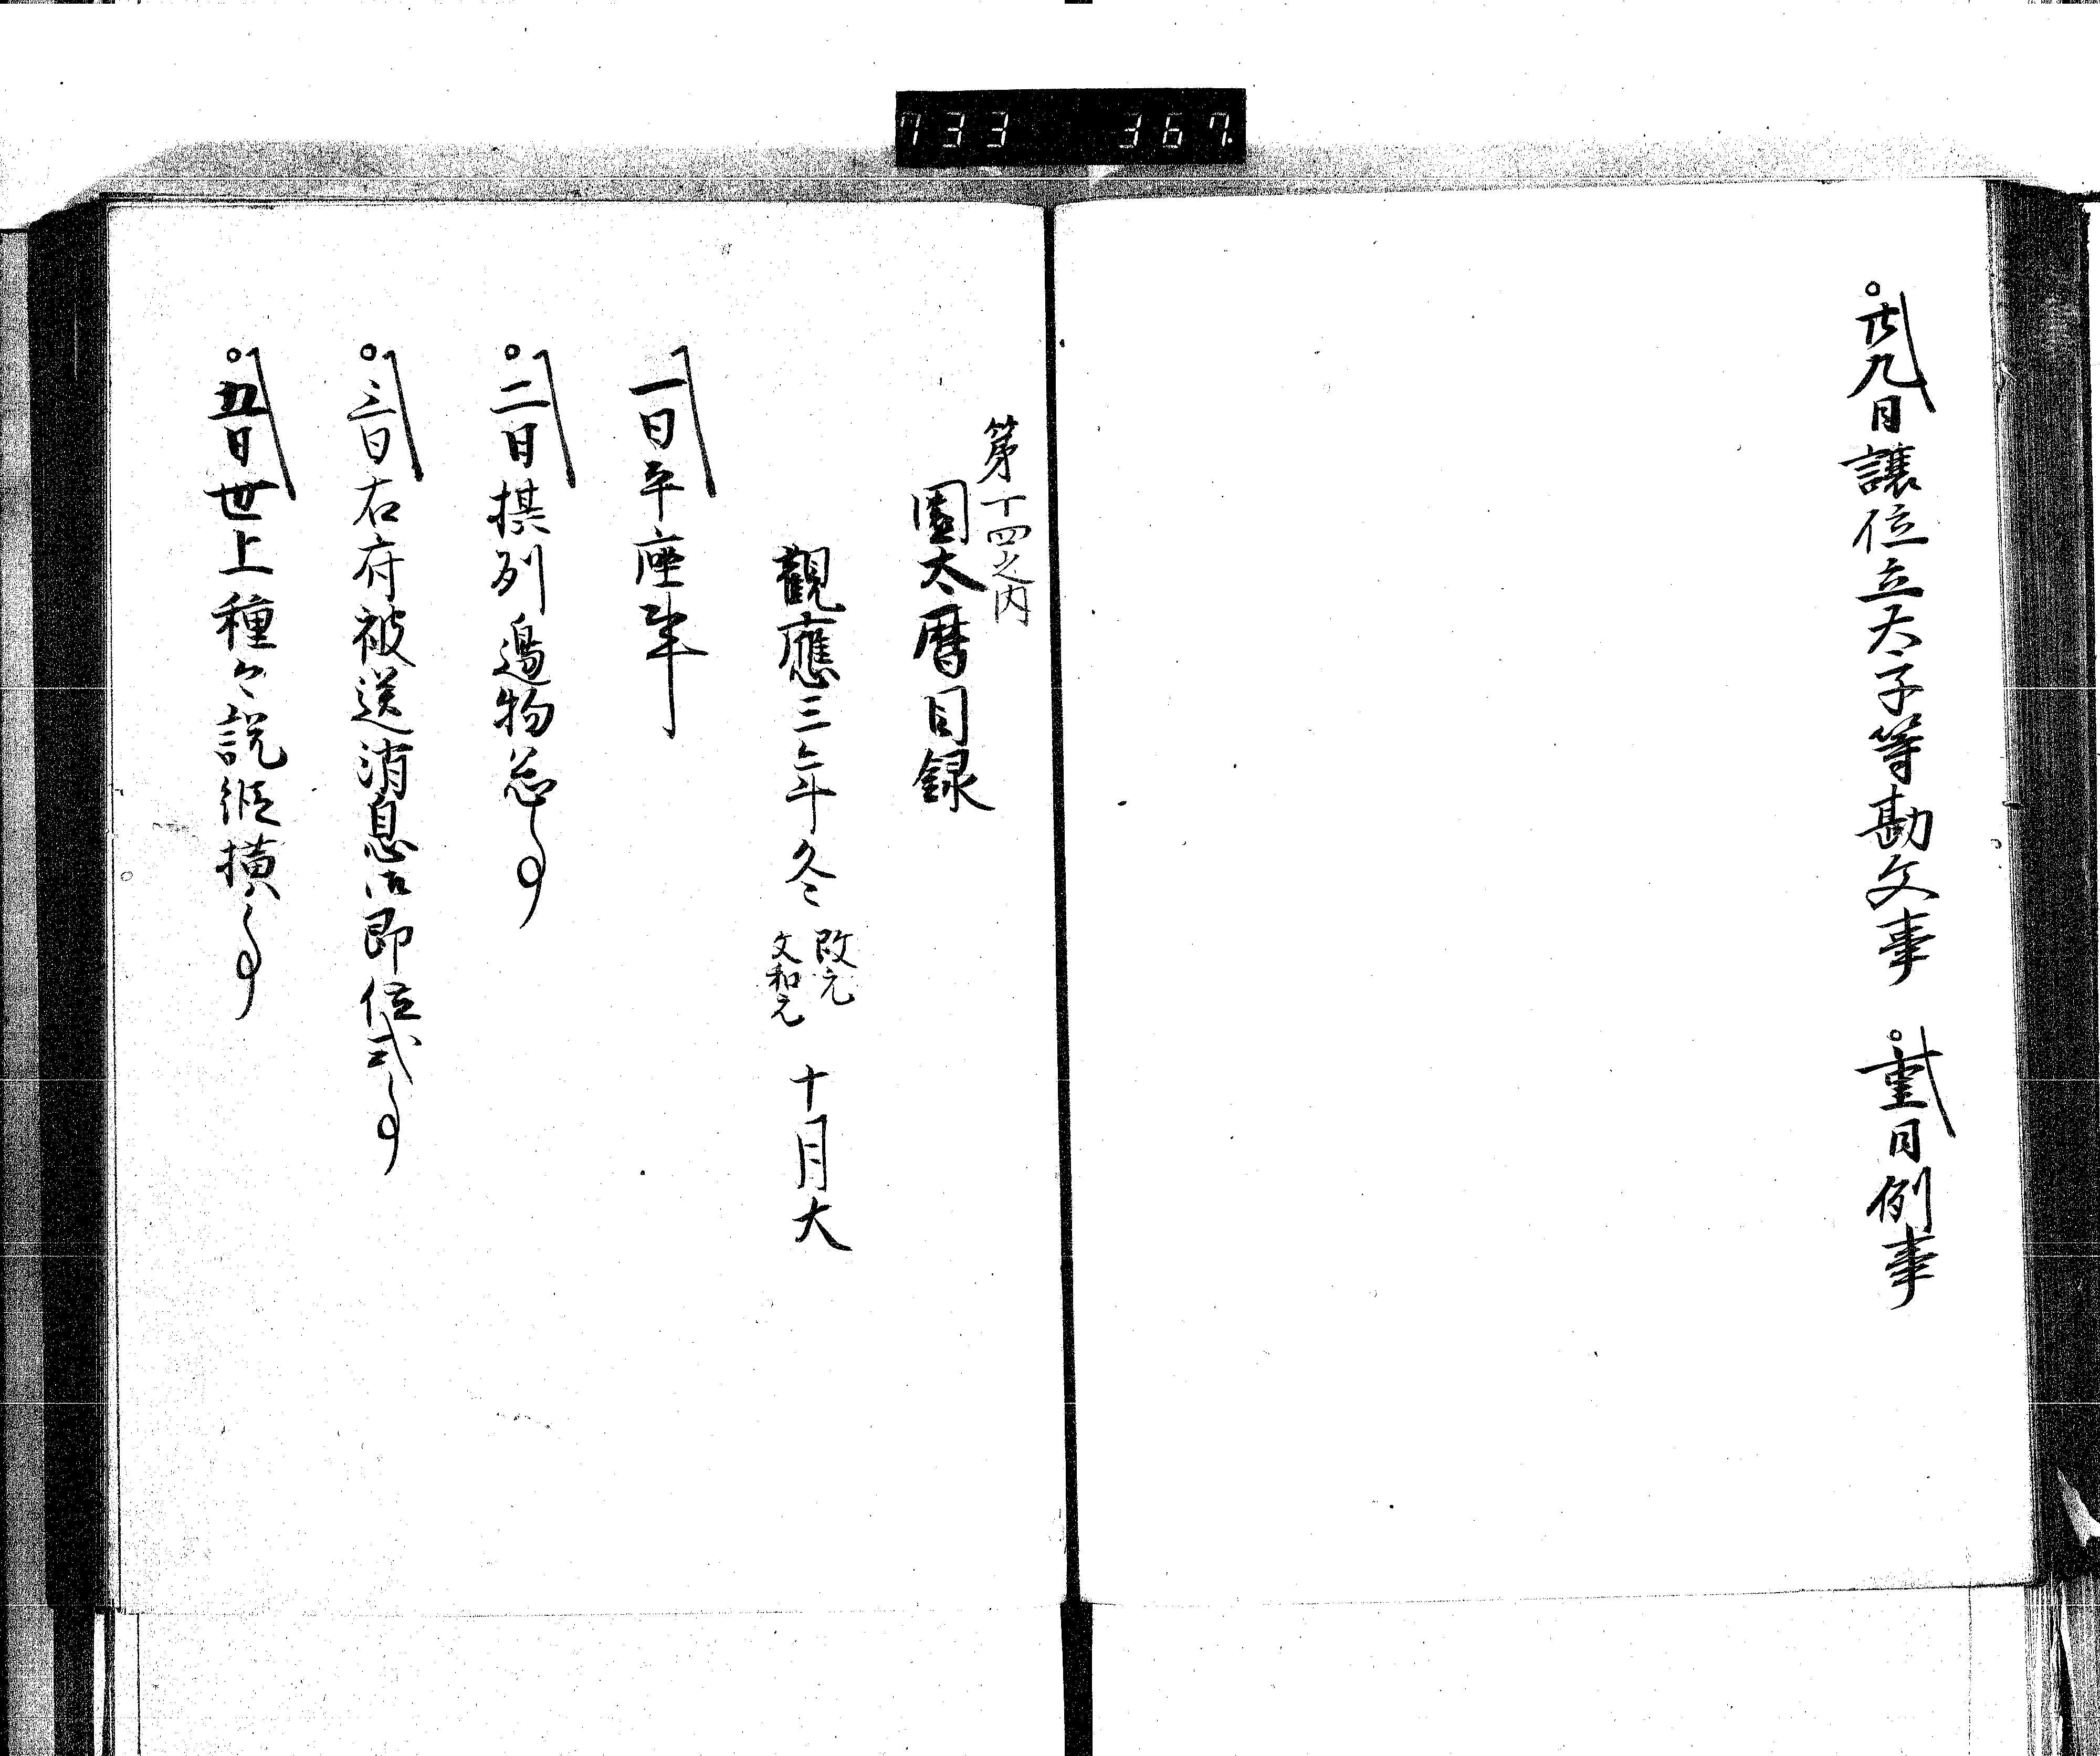 733 367
廿九日讓位立太子等勘文事 重日例事
第十四之内
園太暦目録
觀應三年冬 改元文和元 十月大
一日平座事
二日摂列邊物忩事
三日右府被送消息御即位式事
五日世上種々説縦横事